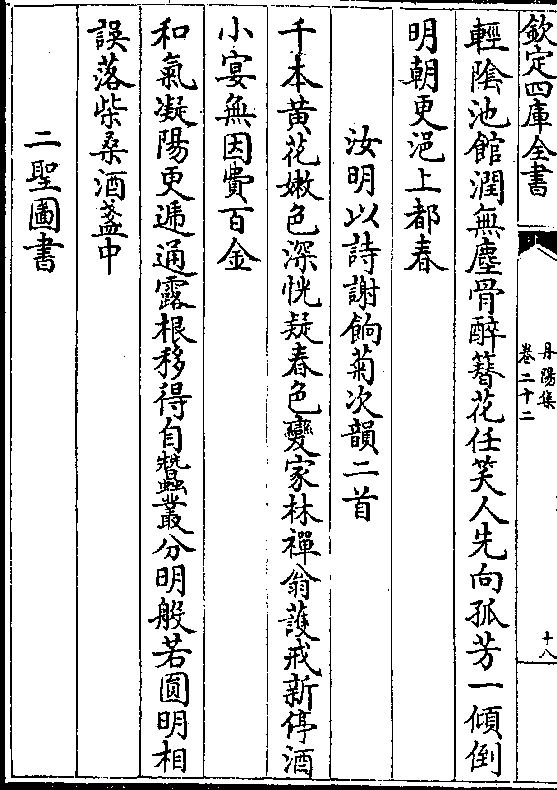 欽定四庫全書
丹陽集
卷二十二
十八
輕隂池館潤無塵骨醉簪花任笑人先向孤芳一傾倒
明朝更浥上都春
汝明以詩謝餉菊次韻二首
千本黄花嫩色深恍疑春色變家林禪翁護戒新停酒
小宴無因費百金
和氣凝陽更遞通露根移得自蠶叢分明般若圓明相
誤落柴桑酒盞中
二聖圖書